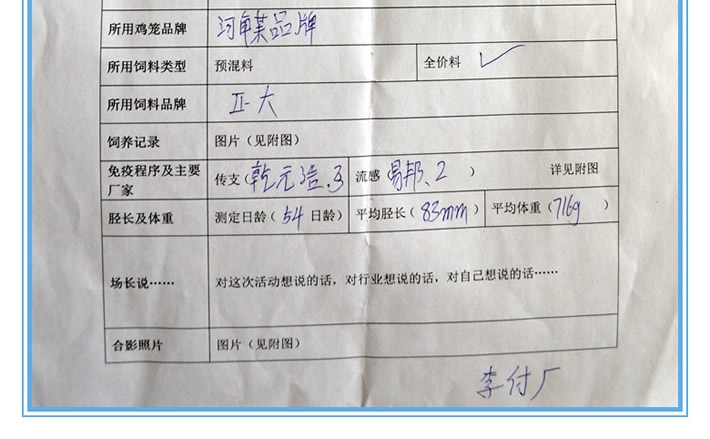 所用鸡笼品牌 河南某品牌
所用饲料类型 预混料 全价料 ✓
所用饲料品牌 正大
饲养记录 图片（见附图）
免疫程序及主要厂家 传支（乾元浩、3 流感 易邦、2 ） 详见附图
胫长及体重 测定日龄（54 日龄） 平均胫长（83mm） 平均体重（716g）
场长说…… 对这次活动想说的话，对行业想说的话，对自己想说的话……
合影照片 图片（见附图）
李付厂